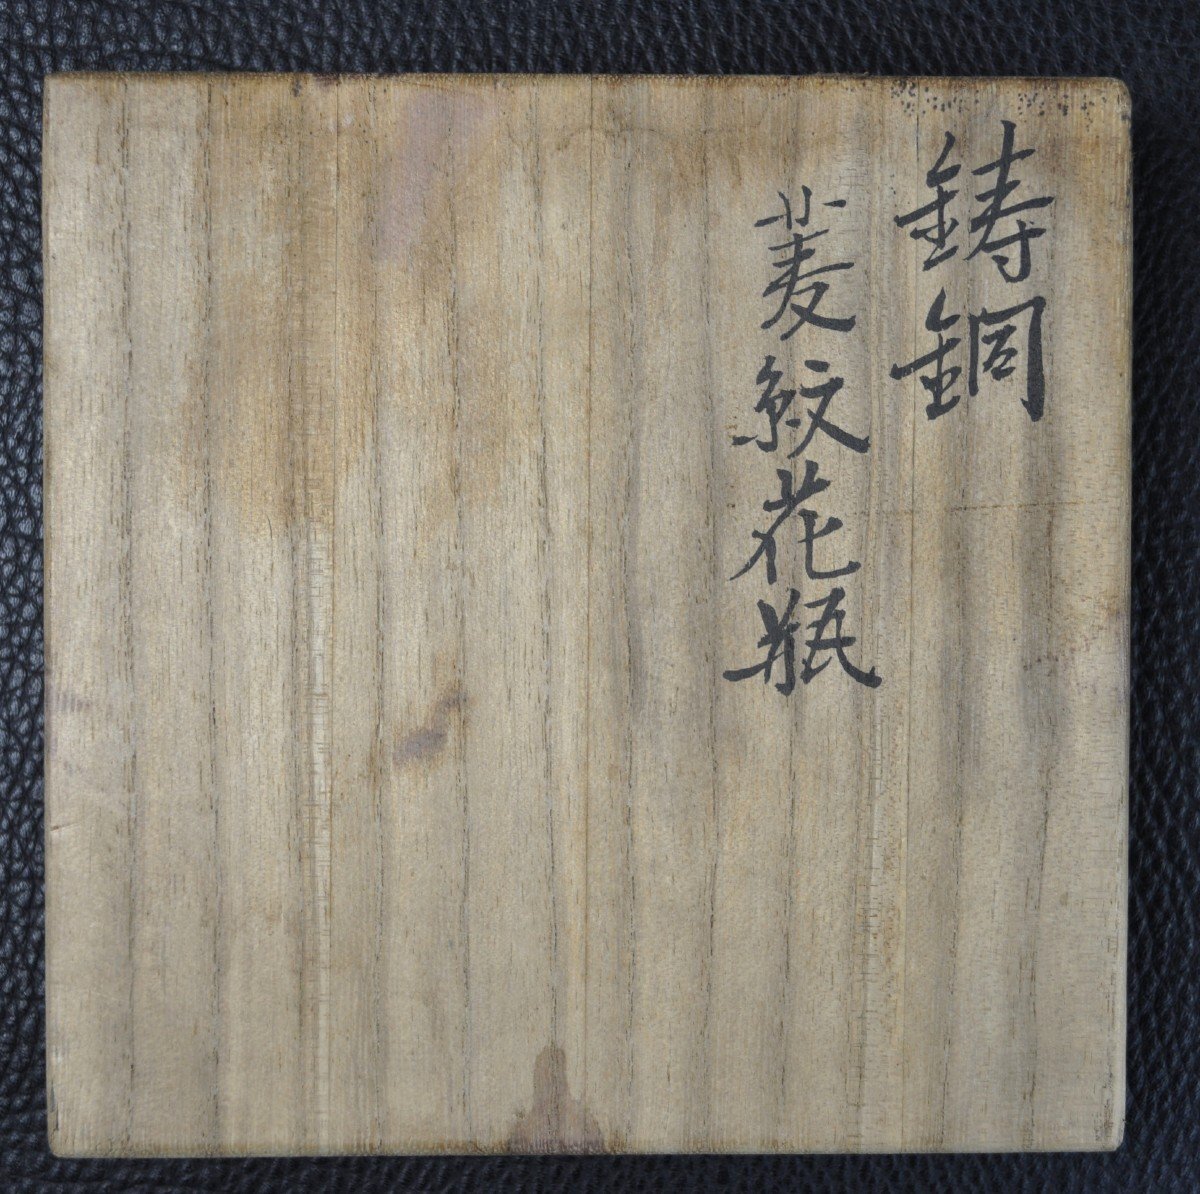 鋳銅
菱紋花瓶